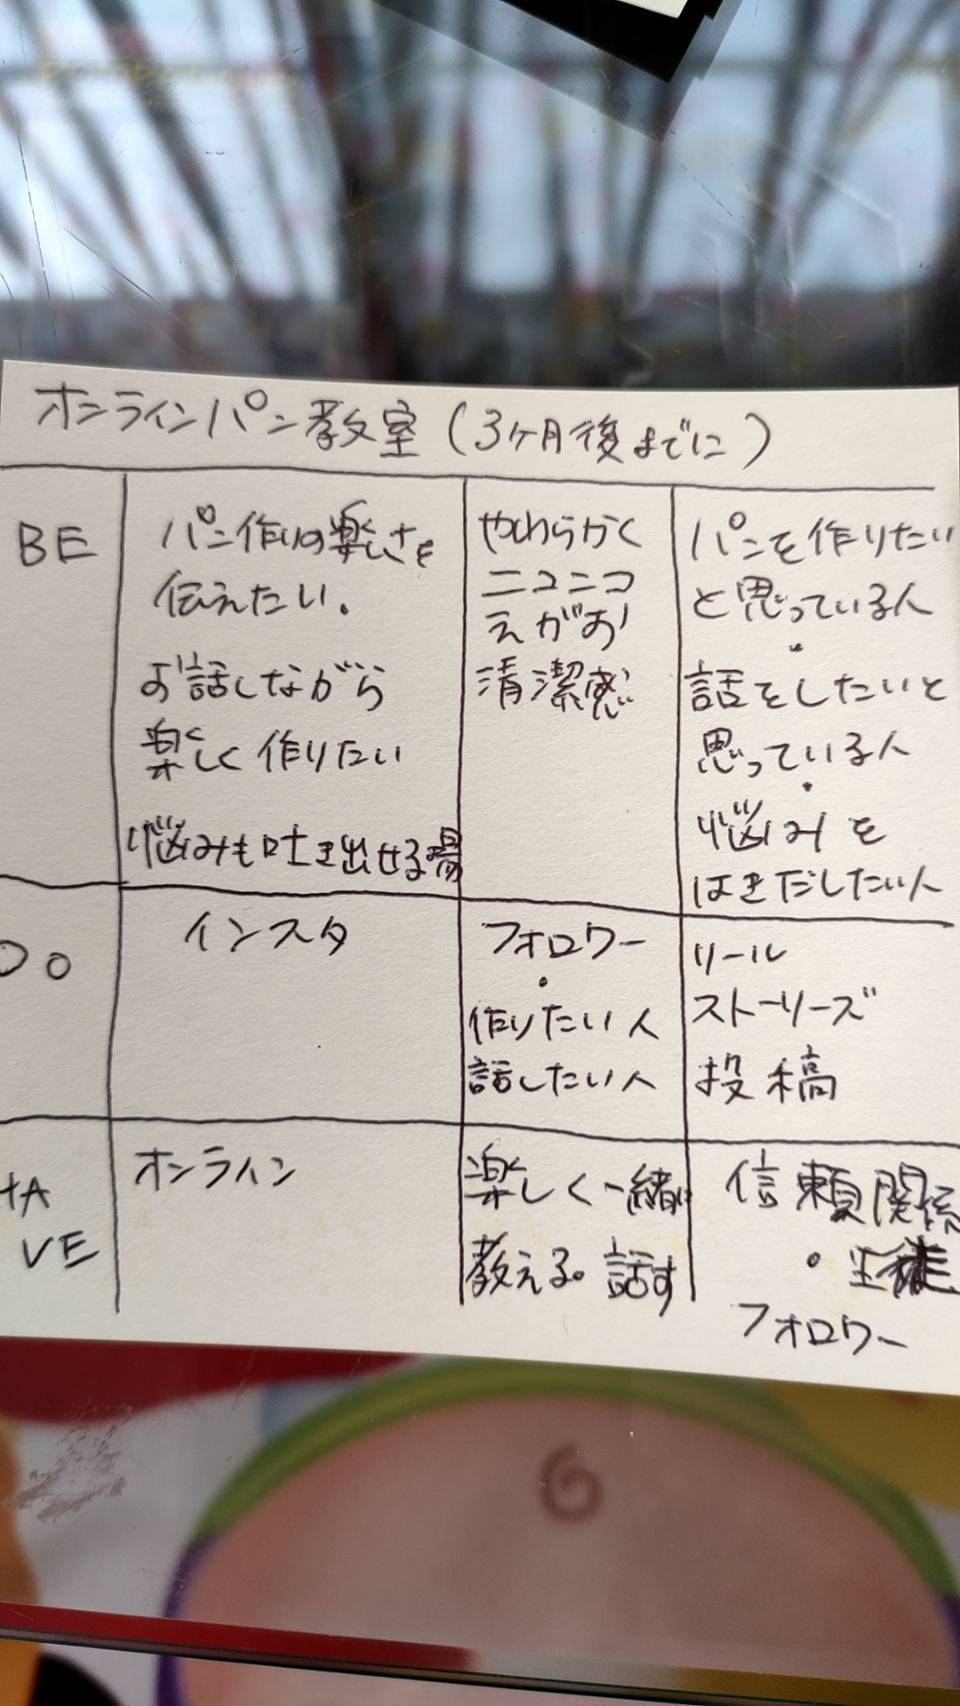 オンラインパン教室(3ケ月後までに)
BE
パン作りの楽しさを
伝えたい。
お話しながら
楽しく作りたい
悩みも吐き出せる場
やわらかく
ニコニコ
えがお
清潔感
パンを作りたい
と思っている人
・
話をしたいと
思っている人
・
悩みを
はきだしたい人
DO
インスタ
フォロワー
・
作りたい人
話したい人
リール
ストーリーズ
投稿
HA
VE
オンライン
楽しく一緒に
教える。話す
信頼関係
・生徒
フォロワー